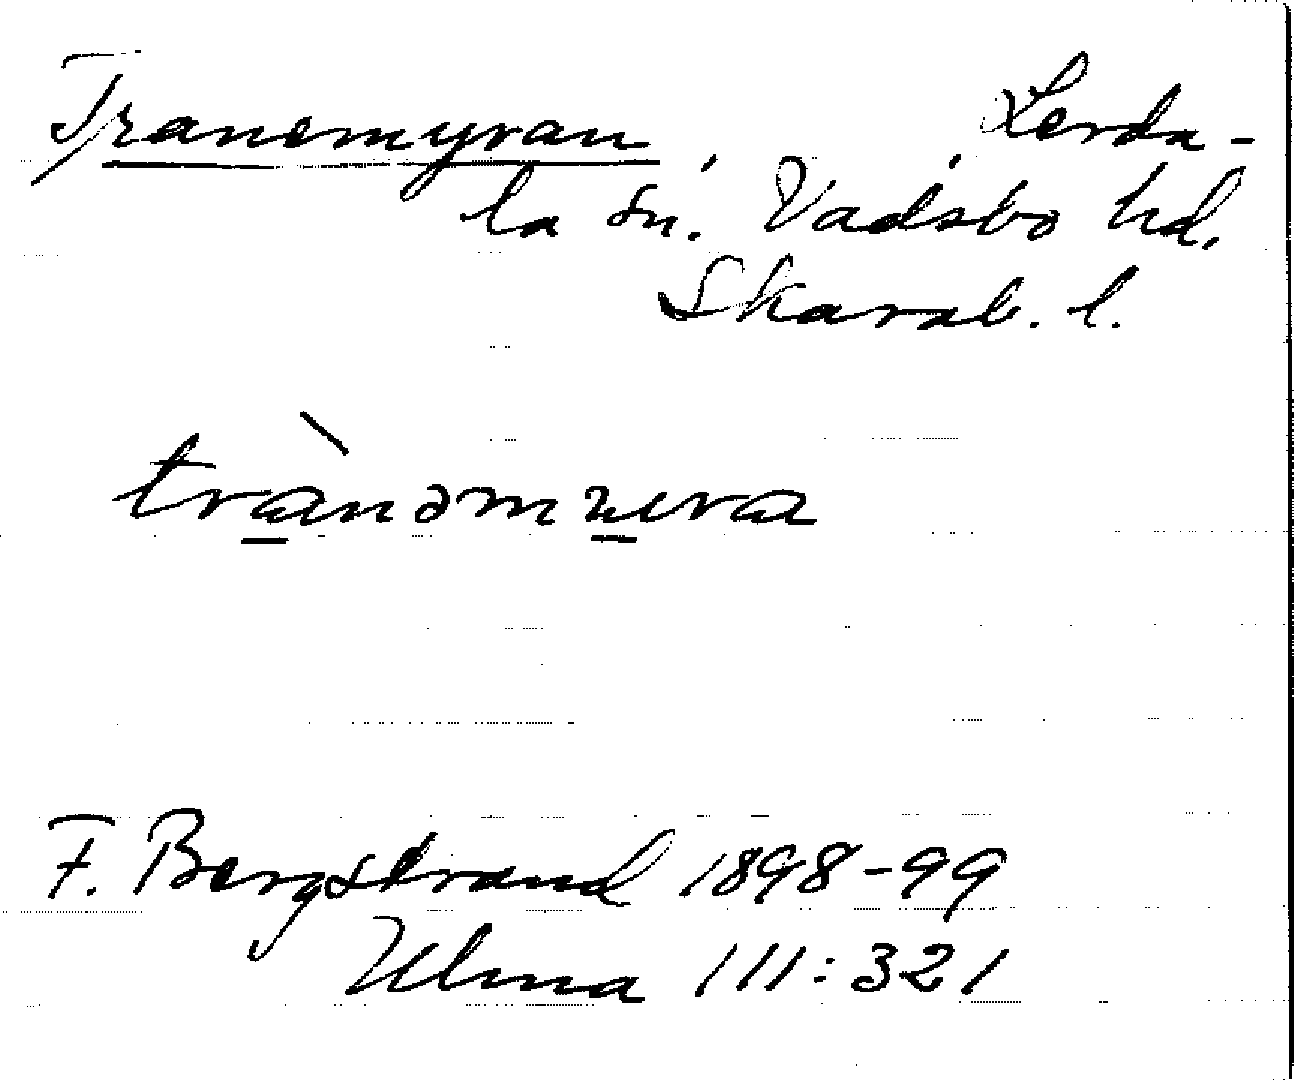 Tranemyran, Lerda-
la sn. Vadsbo hd.
Skarab. l.
trànəmuera
F. Bergstrand 1898-99
Ulma 111:321